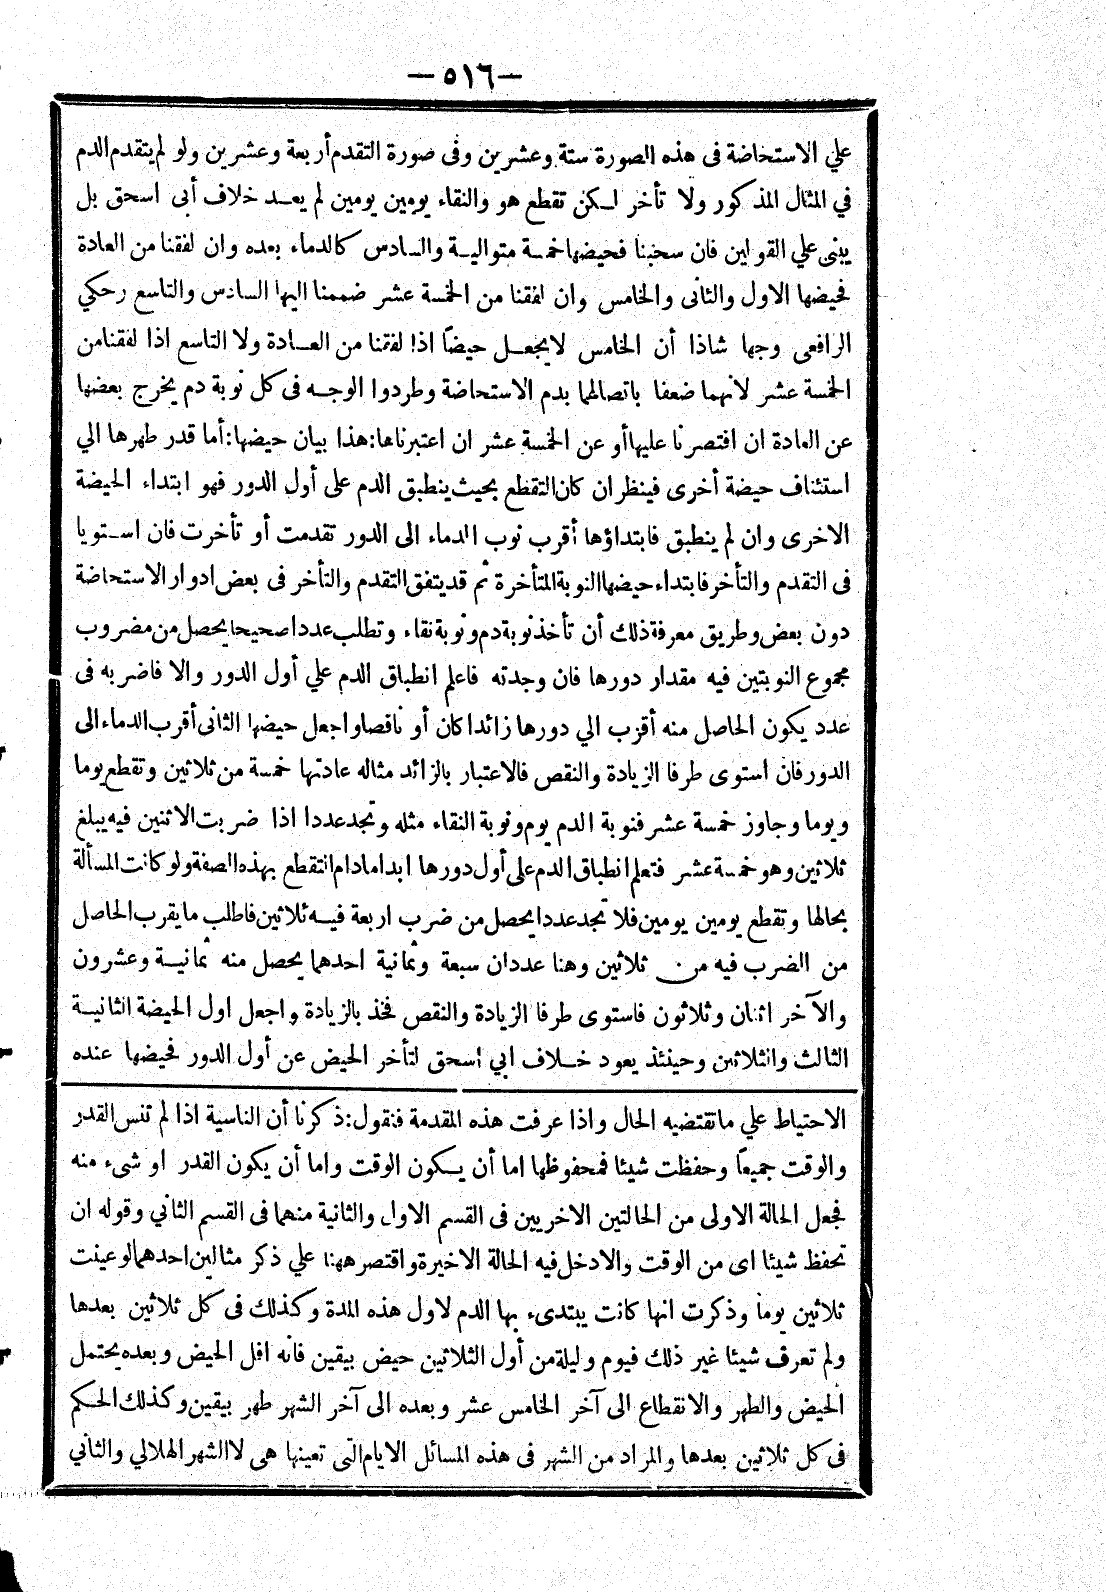 — ٥١٦ —
علي الاستحاضة فى هذه الصورة ستة وعشرين وفى صورة التقدم أربعة وعشرين ولو لم يتقدم الدم
في المثال المذكور ولا تأخر لكن تقطع هو والنقاء يومين يومين لم يعد خلاف أبى اسحق بل
يبنى علي القولين فان سحبنا فحيضها خمسة متوالية والسادس كالدماء بعده وان لفقنا من العادة
فحيضها الاول والثانى والخامس وان لفقنا من الخمسة عشر ضممنا اليها السادس والتاسع وحكي
الرافعى وجها شاذا أن الخامس لا يجعل حيضاً اذا لفقنا من العادة ولا التاسع اذا لفقنا من
الخمسة عشر لانهما ضعفا باتصالهما بدم الاستحاضة وطردوا الوجه فى كل نوبة دم يخرج بعضها
عن العادة ان اقتصرنا عليها أو عن الخمسة عشر ان اعتبرناها: هذا بيان حيضها: أما قدر طهرها الي
استئناف حيضة أخرى فينظر ان كان التقطع بحيث ينطبق الدم على أول الدور فهو ابتداء الحيضة
الاخرى وان لم ينطبق فابتداؤها أقرب نوب الدماء الى الدور تقدمت أو تأخرت فان استويا
فى التقدم والتأخر فابتداء حيضها النوبة المتأخرة ثم قد يتفق التقدم والتأخر فى بعض ادوار الاستحاضة
دون بعض وطريق معرفة ذلك أن تأخذ نوبة دم ونوبة نقاء وتطلب عددا صحيحا يحصل من مضروب
مجموع النوبتين فيه مقدار دورها فان وجدته فاعلم انطباق الدم علي أول الدور والا فاضربه فى
عدد يكون الحاصل منه أقرب الي دورها زائدا كان أو ناقصا واجعل حيضها الثانى أقرب الدماء الى
الدور فان استوى طرفا الزيادة والنقص فالاعتبار بالزائد مثاله عادتها خمسة من ثلاثين وتقطع يوما
ويوما وجاوز خمسة عشر فنوبة الدم يوم ونوبة النقاء مثله وتجد عددا اذا ضربت الاثنين فيه يبلغ
ثلاثين وهو خمسة عشر فتعلم انطباق الدم على أول دورها ابدا مادام التقطع بهذه الصفة ولو كانت المسألة
بحالها وتقطع يومين يومين فلا تجد عددا يحصل من ضرب اربعة فيه ثلاثين فاطلب ما يقرب الحاصل
من الضرب فيه من ثلاثين وهنا عددان سبعة وثمانية احدهما يحصل منه ثمانية وعشرون
والآخر اثنان وثلاثون فاستوى طرفا الزيادة والنقص فخذ بالزيادة واجعل اول الحيضة الثانية
الثالث والثلاثين وحينئذ يعود خلاف ابي اسحق لتأخر الحيض عن أول الدور فحيضها عنده
الاحتياط علي ما تقتضيه الحال واذا عرفت هذه المقدمة فنقول: ذكرنا أن الناسية اذا لم تنس القدر
والوقت جميعاً وحفظت شيئا فمحفوظها اما أن يكون الوقت واما أن يكون القدر او شىء منه
فجعل الحالة الاولى من الحالتين الاخريين فى القسم الاول والثانية منهما فى القسم الثاني وقوله ان
تحفظ شيئا اى من الوقت والا دخل فيه الحالة الاخيرة واقتصر ههنا علي ذكر مثالين احدهما لو عينت
ثلاثين يوما وذكرت انها كانت يبتدىء بها الدم لاول هذه المدة وكذلك فى كل ثلاثين بعدها
ولم تعرف شيئا غير ذلك فيوم وليلة من أول الثلاثين حيض بيقين فانه اقل الحيض وبعده يحتمل
الحيض والطهر والانقطاع الى آخر الخامس عشر وبعده الى آخر الشهر طهر بيقين وكذلك الحكم
فى كل ثلاثين بعدها والمراد من الشهر فى هذه المسائل الايام التى تعينها هى لا الشهر الهلالي والثاني